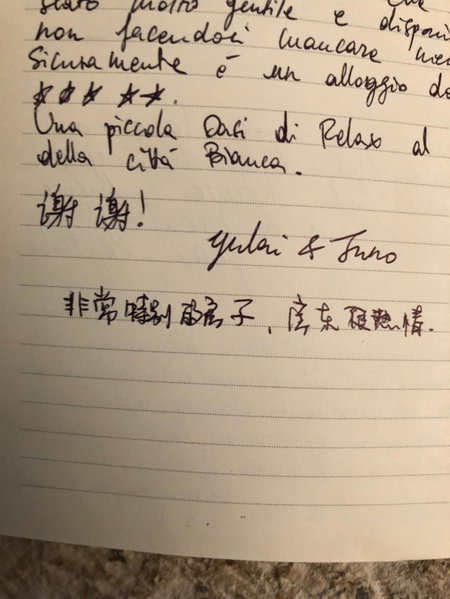 stato molto gentile e disponi
non facendoci mancare
Sicuramente è un alloggio da
★★★ ★★.
Una piccola Oasi di Relax al
della città Bianca.
谢谢!
& Juno
非常特别的房子,房东很热情.